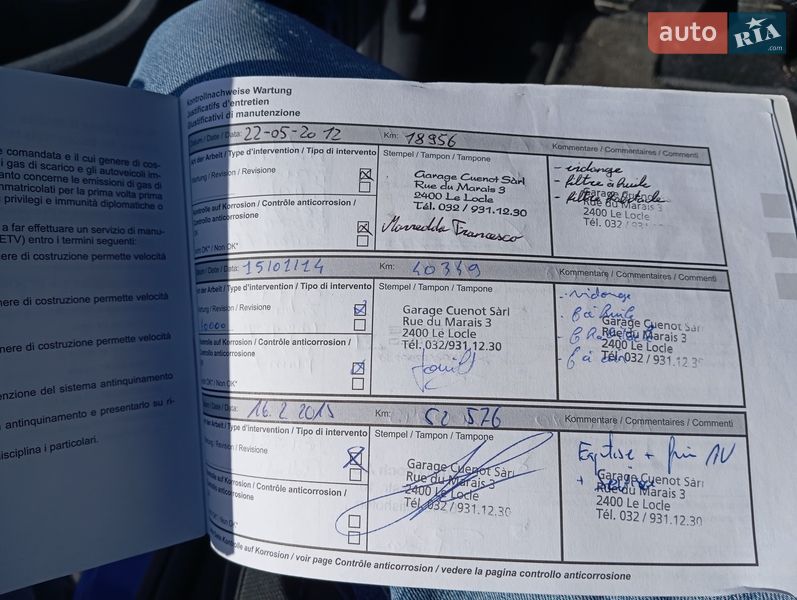 auto RIA .com
Kontrollnachweise Wartung
Justificatifs d'entretien
Giustificativi di manutenzione
comandata e il cui genere di cos-
gas di scarico e gli autoveicoli im-
anto concerne le emissioni di gas di
nmatricolati per la prima volta prima
privilegi e immunità diplomatiche o
a far effettuare un servizio di manu-
ETV) entro i termini seguenti:
nere di costruzione permette velocità
nere di costruzione permette velocità
nere di costruzione permette velocità
enzione del sistema antinquinamento
antinquinamento e presentarlo su ri-
disciplina i particolari.
Datum / Date / Data: 22-05-2012 Km: 18956 Kommentare / Commentaires / Commenti
Art der Arbeit / Type d'intervention / Tipo di intervento
Wartung / Révision / Revisione
Kontrolle auf Korrosion / Contrôle anticorrosion /
Controllo anticorrosione
OK* / Non OK*
Stempel / Tampon / Tampone
Garage Cuenot Sàrl
Rue du Marais 3
2400 Le Locle
Tél. 032 / 931.12.30
Francesco
- vidange
- filtre à huile
- filtre
Garage Cuenot Sàrl
Rue du Marais 3
2400 Le Locle
Tél. 032 / 931.12
Datum / Date / Data: 15/01/14 Km: 40349 Kommentare / Commentaires / Commenti
Art der Arbeit / Type d'intervention / Tipo di intervento
Wartung / Révision / Revisione
Kontrolle auf Korrosion / Contrôle anticorrosion /
Controllo anticorrosione
OK* / Non OK*
Stempel / Tampon / Tampone
Garage Cuenot Sàrl
Rue du Marais 3
2400 Le Locle
Tél. 032/931.12.30
- vidange
Garage Cuenot Sàrl
Rue du Marais 3
2400 Le Locle
Tél. 032 / 931.12.30
Date / Data: 16.2.2015 Km: 52 576 Kommentare / Commentaires / Commenti
Art der Arbeit / Type d'intervention / Tipo di intervento
Wartung / Révision / Revisione
Kontrolle auf Korrosion / Contrôle anticorrosion /
Controllo anticorrosione
OK* / Non OK*
Stempel / Tampon / Tampone
Garage Cuenot Sàrl
Rue du Marais 3
2400 Le Locle
Tél. 032 / 931.12.30
Garage Cuenot Sàrl
Rue du Marais 3
2400 Le Locle
Tél. 032 / 931.12.30
Kontrolle auf Korrosion / voir page Contrôle anticorrosion / vedere la pagina controllo anticorrosione